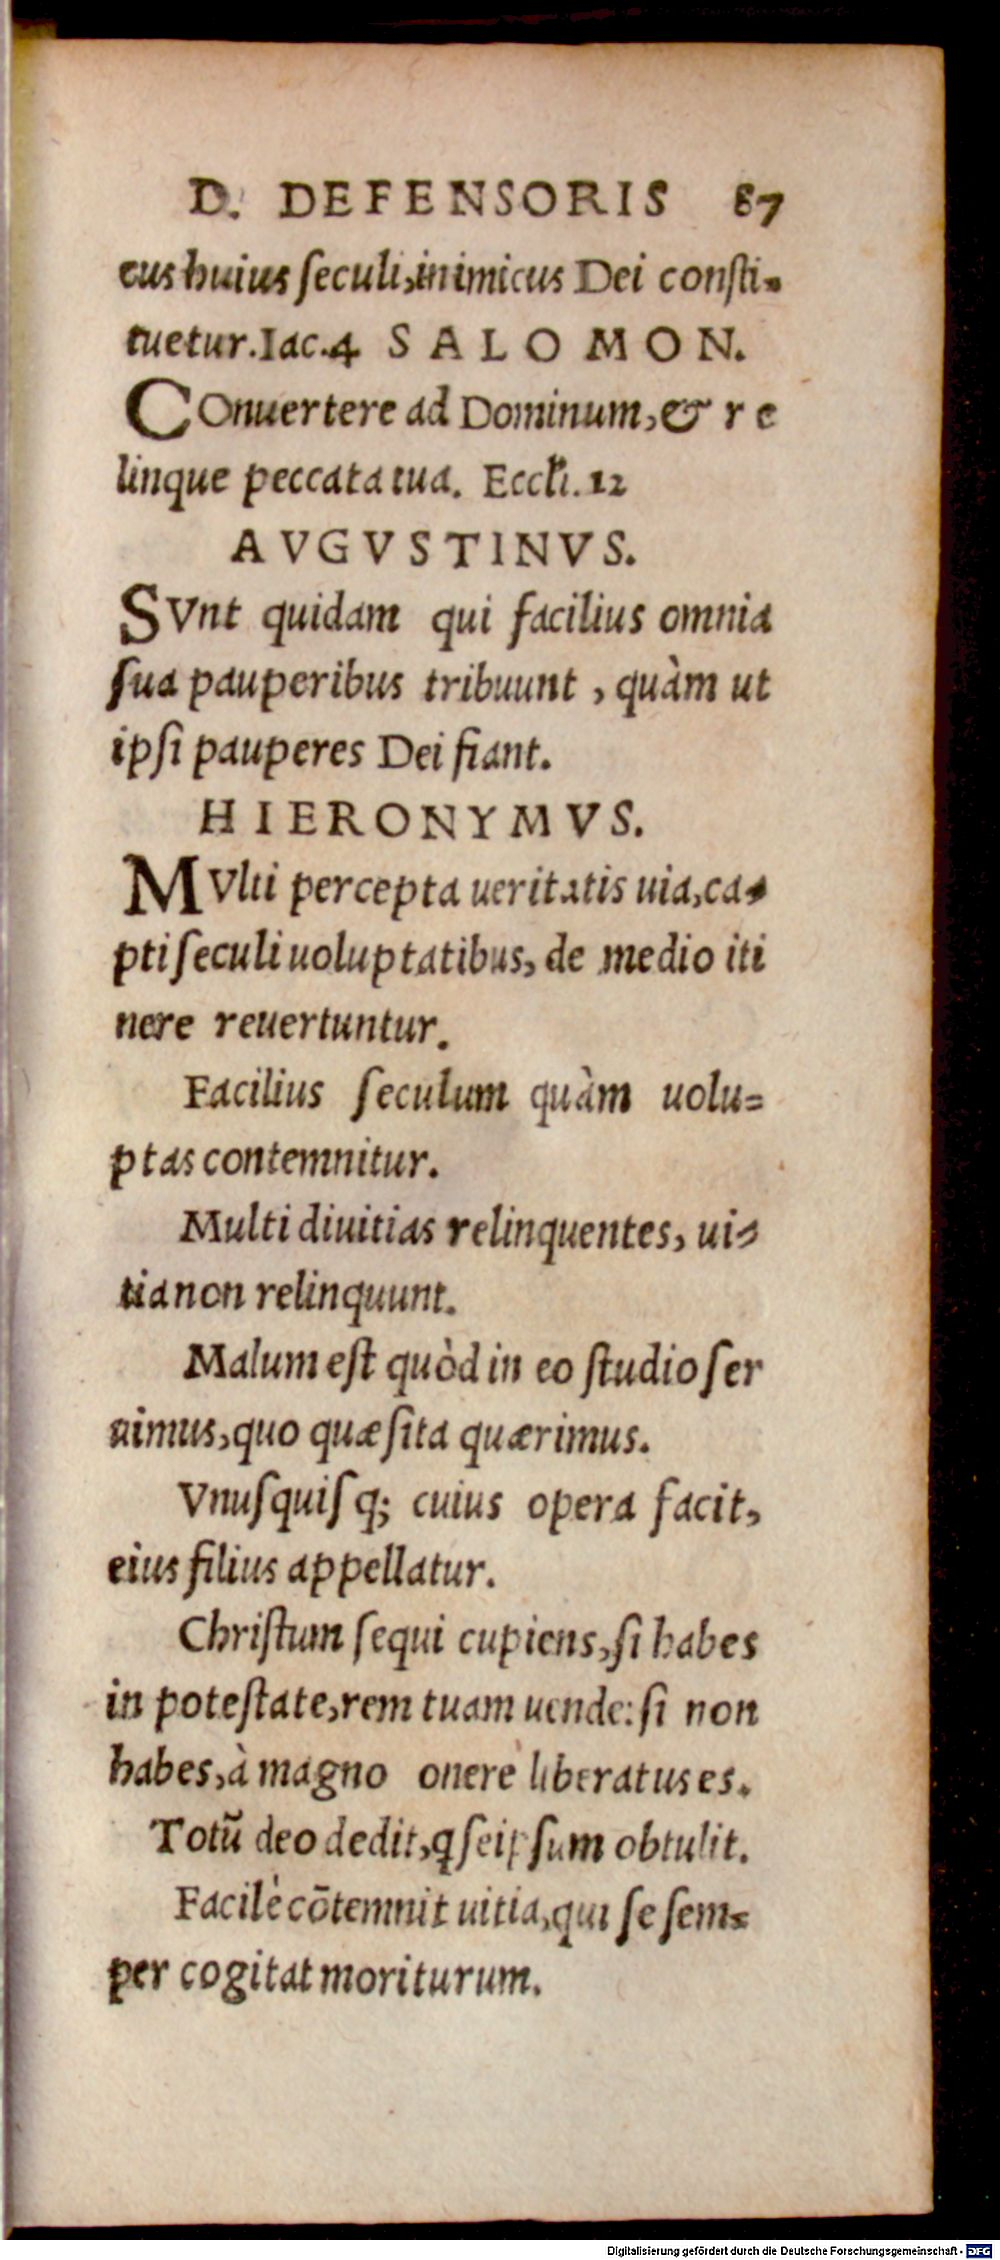 D. DEFENSORIS 87
cus huius ſeculi, inimicus Dei conſti-
tuetur. Iac. 4 SALOMON.
COnuertere ad Dominum, & re
linque peccata tua. Eccli. 12
AVGVSTINVS.
SVnt quidam qui facilius omnia
ſua pauperibus tribuunt, quàm ut
ipſi pauperes Dei fiant.
HIERONYMVS.
MVlti percepta ueritatis uia, ca-
pti ſeculi uoluptatibus, de medio iti
nere reuertuntur.
Facilius ſeculum quàm uolu=
ptas contemnitur.
Multi diuitias relinquentes, ui-
tia non relinquunt.
Malum eſt quòd in eo ſtudio ſer
uimus, quo quæſita quærimus.
Vnuſquiſq; cuius opera facit,
eius filius appellatur.
Chriſtum ſequi cupiens, ſi habes
in poteſtate, rem tuam uende: ſi non
habes, à magno onere liberatus es.
Totũ deo dedit, q ſeipſum obtulit.
Facilè cõtemnit uitia, qui ſe ſem=
per cogitat moriturum.
Digitalisierung gefördert durch die Deutsche Forschungsgemeinschaft - DFG